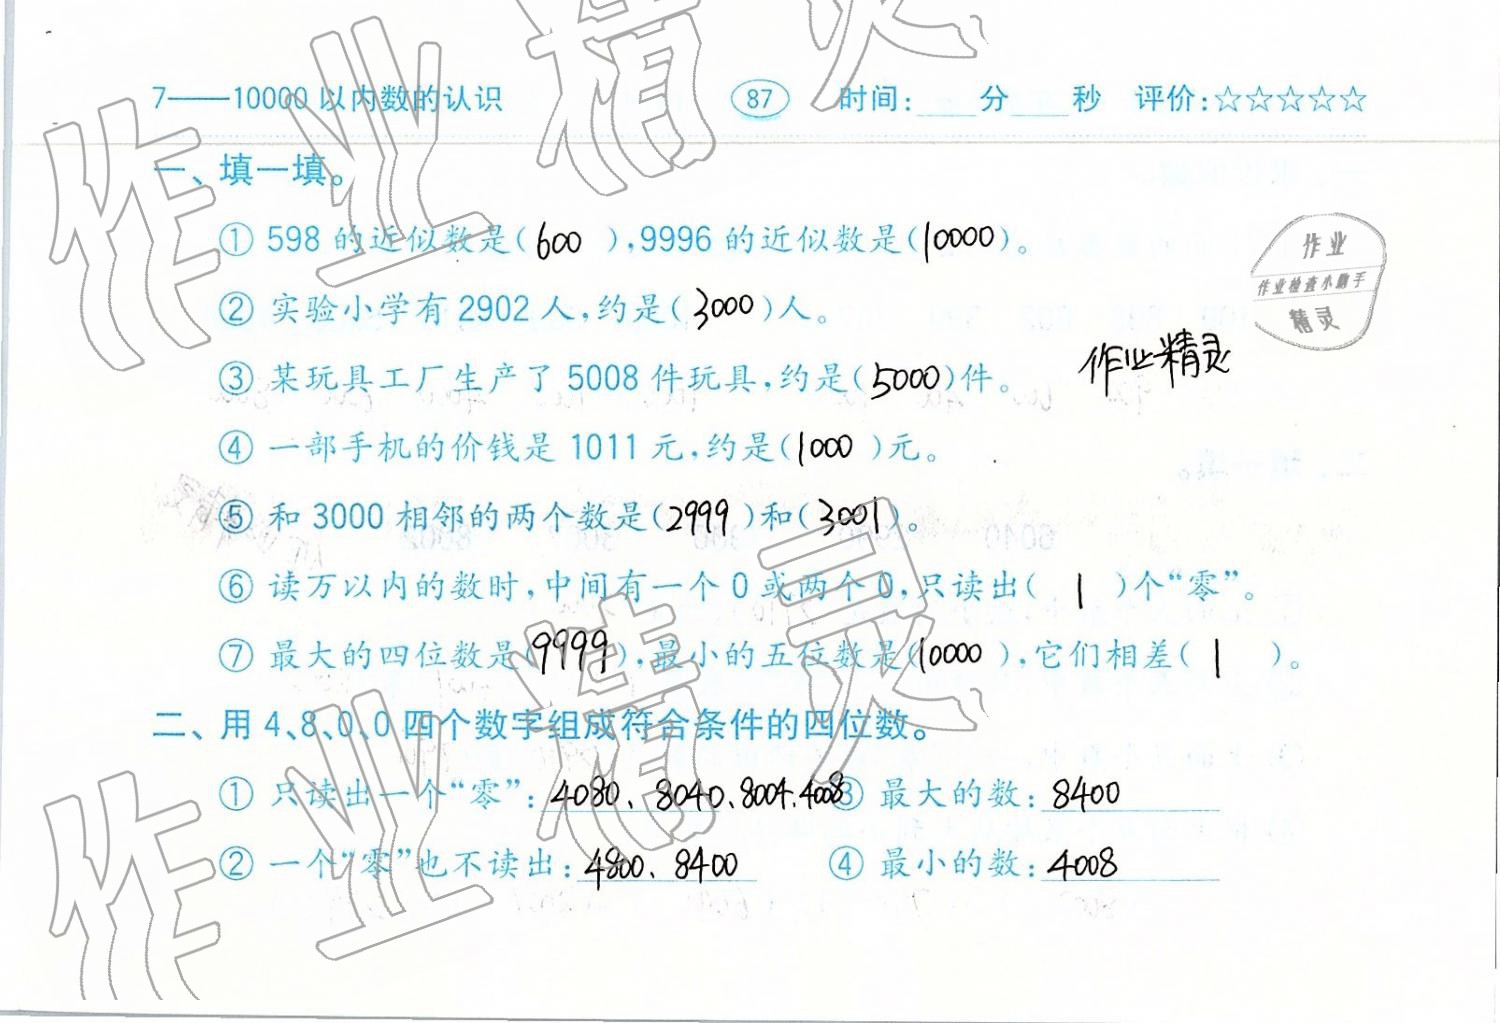 7——10000以内数的认识 87 时间:____分____秒 评价:☆☆☆☆☆
一、填一填。
① 598的近似数是(600),9996的近似数是(10000)。
② 实验小学有2902人,约是(3000)人。
作业
作业检查小助手
精灵
③ 某玩具工厂生产了5008件玩具,约是(5000)件。 作业精灵
④ 一部手机的价钱是1011元,约是(1000)元。
⑤ 和3000相邻的两个数是(2999)和(3001)。
⑥ 读万以内的数时,中间有一个0或两个0,只读出(1)个“零”。
⑦ 最大的四位数是(9999),最小的五位数是(10000),它们相差(1)。
二、用4、8、0、0四个数字组成符合条件的四位数。
① 只读出一个“零”:4080、8040、8004、4008 ③ 最大的数:8400
② 一个“零”也不读出:4800、8400 ④ 最小的数:4008
作业精灵
作业精灵